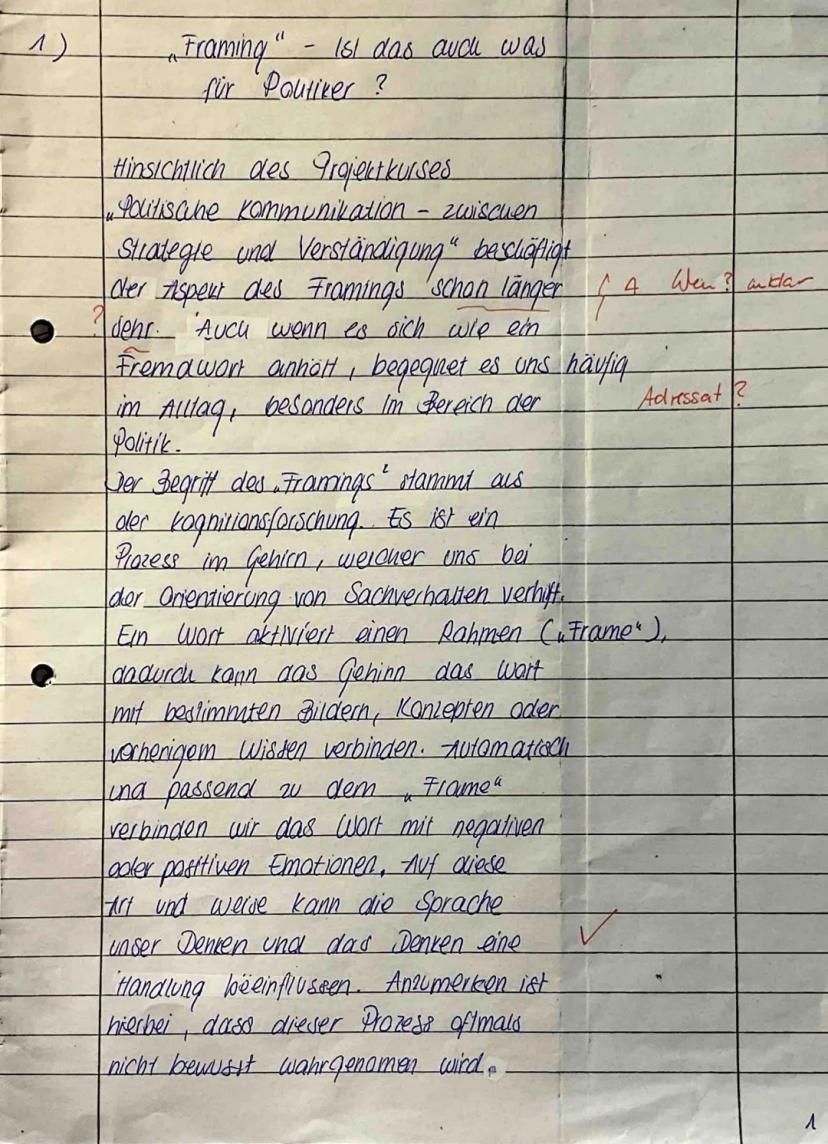 1) „Framing" - Ist das auch was
für Politiker ?
Hinsichtlich des Projektkurses
„Politische Kommunikation - zwischen
Strategie und Verständigung" beschäftigt
der Aspekt des Framings schon länger { A Wen? unklar
? sehr. Auch wenn es sich wie ein
Fremdwort anhört, begegnet es uns häufig
im Alltag, besonders im Bereich der Adressat ?
Politik.
Der Begriff des „Framings" stammt aus
der Kognitionsforschung. Es ist ein
Prozess im Gehirn, welcher uns bei
der Orientierung von Sachverhalten verhilft.
Ein Wort aktiviert einen Rahmen („Frame"),
dadurch kann das Gehirn das Wort
mit bestimmten Bildern, Konzepten oder
vorherigem Wissen verbinden. Automatisch
und passend zu dem „Frame"
verbinden wir das Wort mit negativen
oder positiven Emotionen. Auf diese
Art und weise kann die Sprache
unser Denken und das Denken eine ✓
Handlung beeinflussen. Anzumerken ist
hierbei, dass dieser Prozess oftmals
nicht bewusst wahrgenomen wird.
1